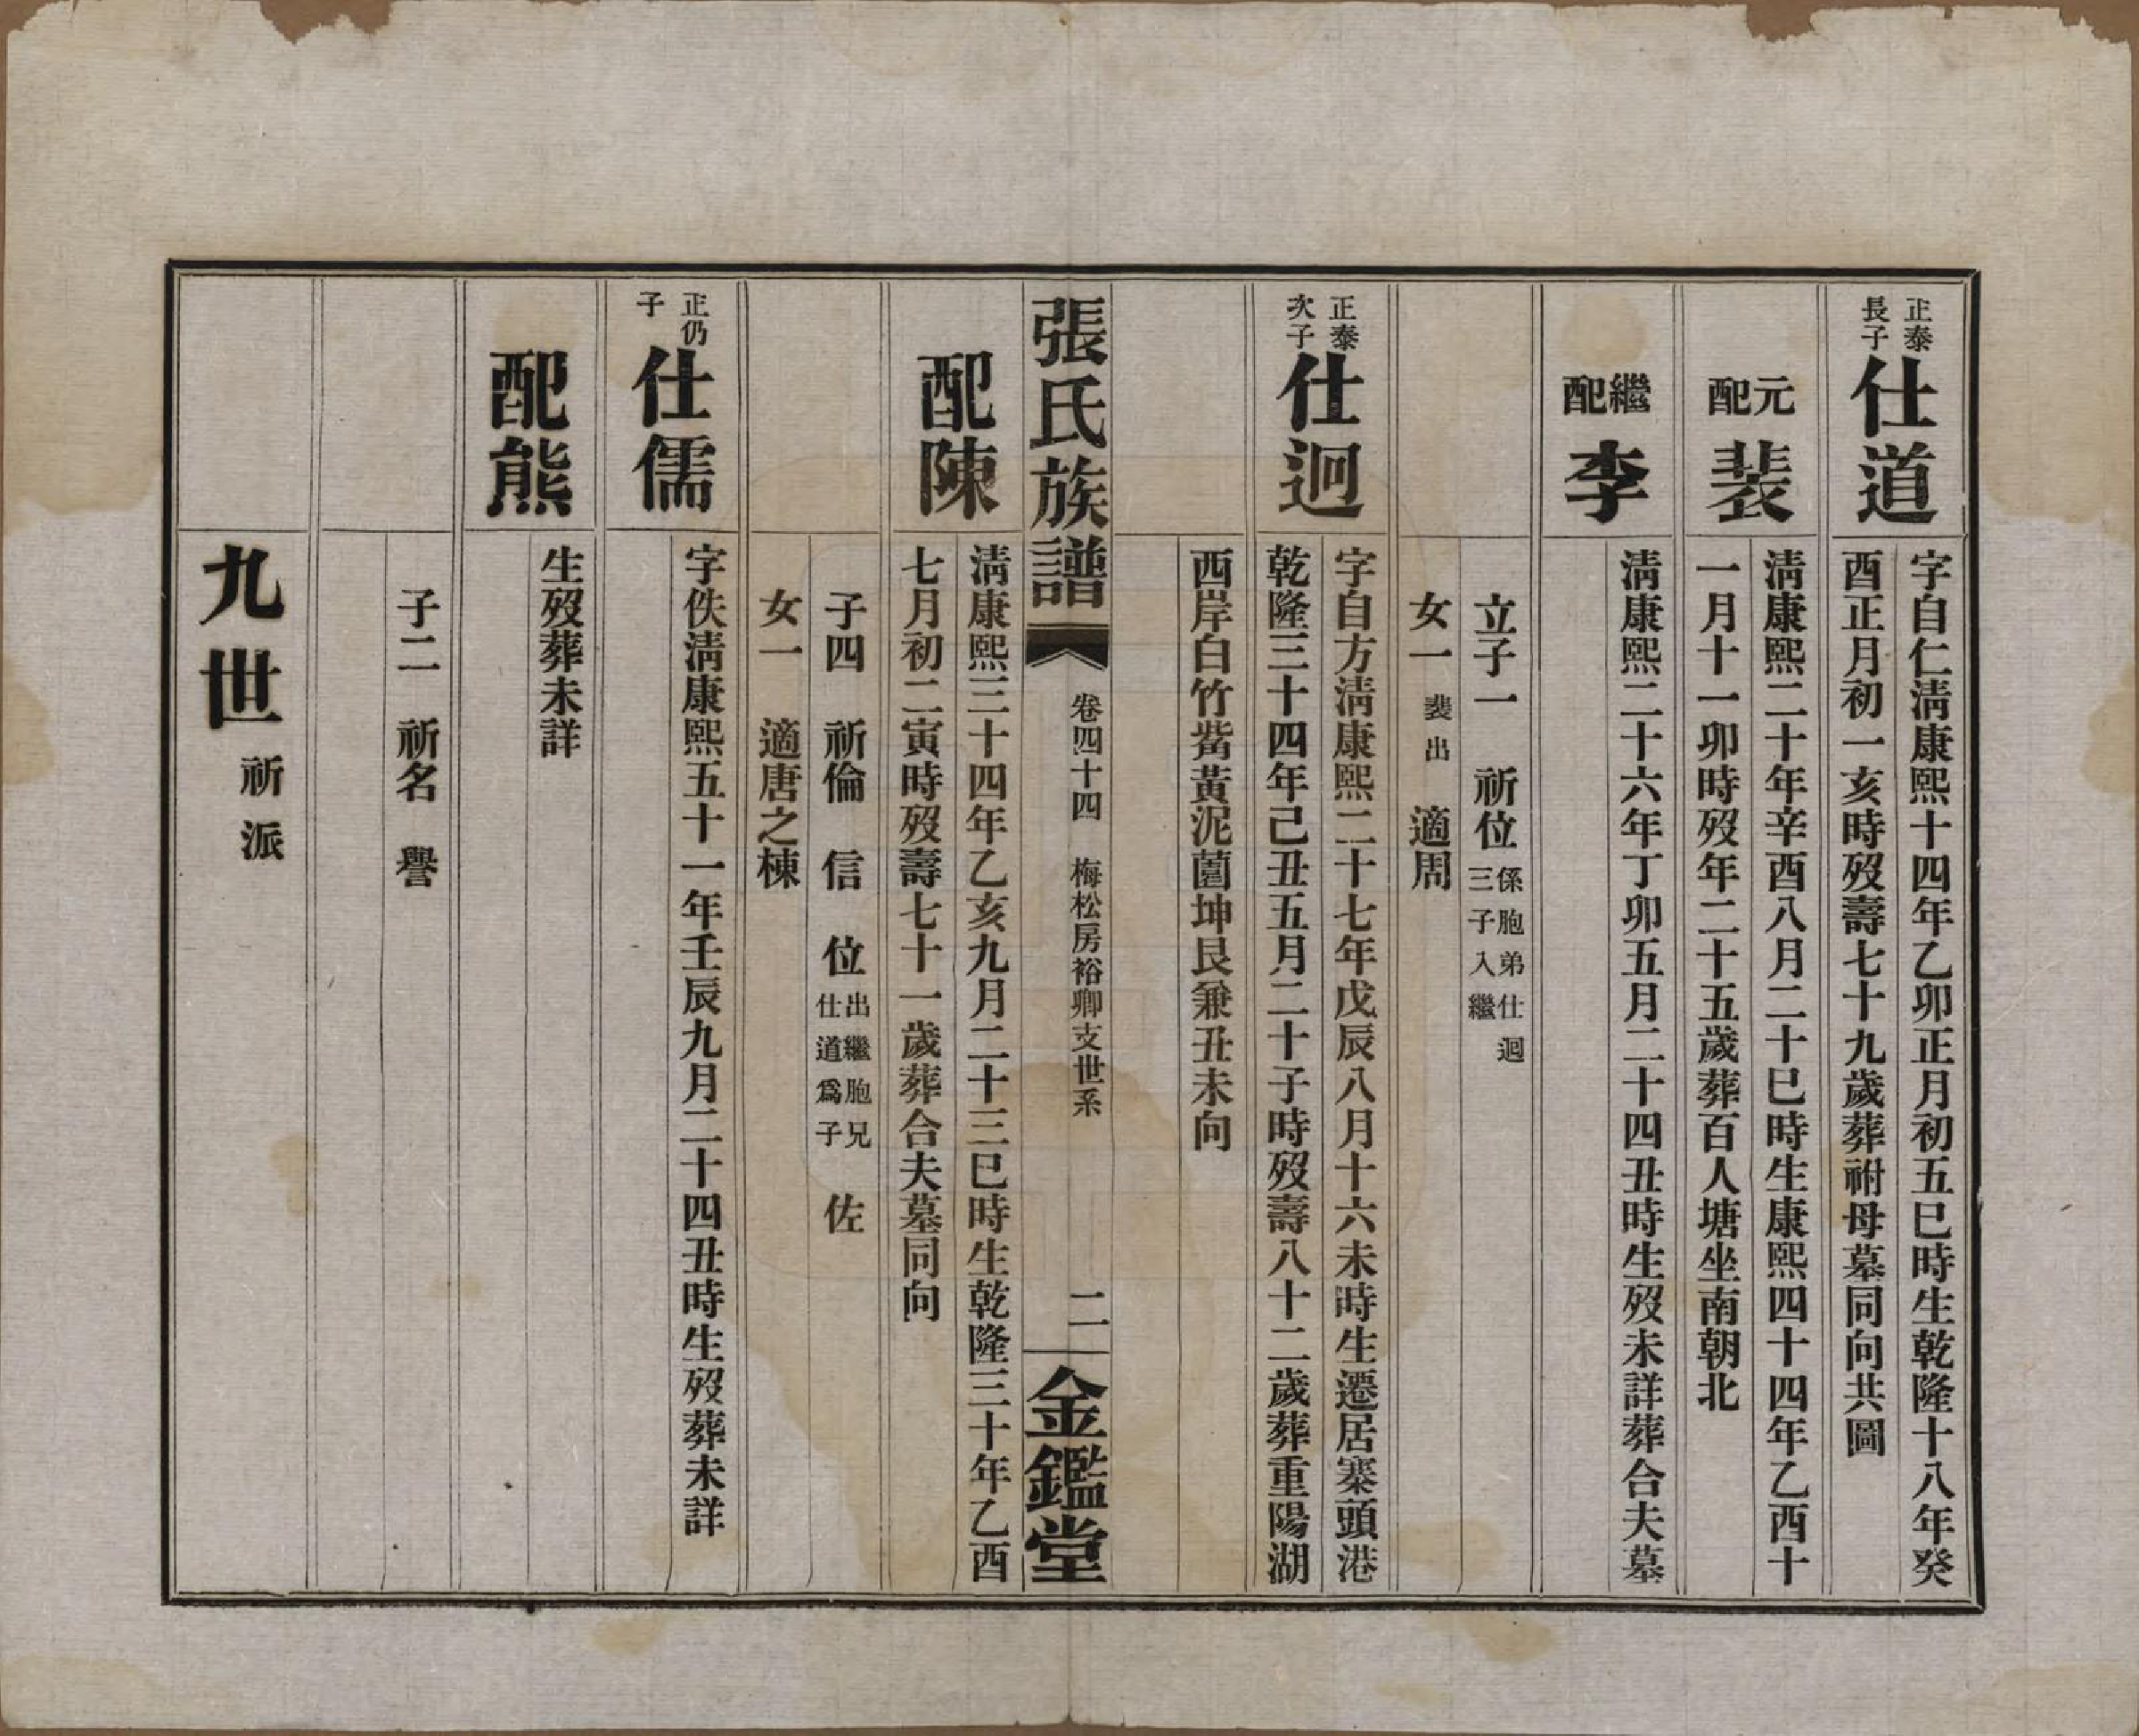 正泰
長子
仕道
字自仁淸康熙十四年乙卯正月初五巳時生乾隆十八年癸
酉正月初一亥時歿壽七十九歲葬祔母墓同向共圖
元配
裴
淸康熙二十年辛酉八月二十巳時生康熙四十四年乙酉十
一月十一卯時歿年二十五歲葬百人塘坐南朝北
繼配
李
淸康熙二十六年丁卯五月二十四丑時生歿未詳葬合夫墓
立子一　祈位係胞弟仕迴三子入繼
女一裴出　適周
正泰
次子
仕迴
字自方淸康熙二十七年戊辰八月十六未時生遷居寨頭港
乾隆三十四年己丑五月二十子時歿壽八十二歲葬重陽湖
西岸白竹嵴黃泥薗坤艮兼丑未向
張氏族譜
卷四十四　梅松房裕卿支世系
二
金鑑堂
配陳
淸康熙三十四年乙亥九月二十三巳時生乾隆三十年乙酉
七月初二寅時歿壽七十一歲葬合夫墓同向
子四　祈倫　信　位出繼胞兄仕道爲子　佐
女一　適唐之棟
正仍
子
仕儒
字佚淸康熙五十一年壬辰九月二十四丑時生歿葬未詳
配熊
生歿葬未詳
子二　祈名　譽
九世祈派